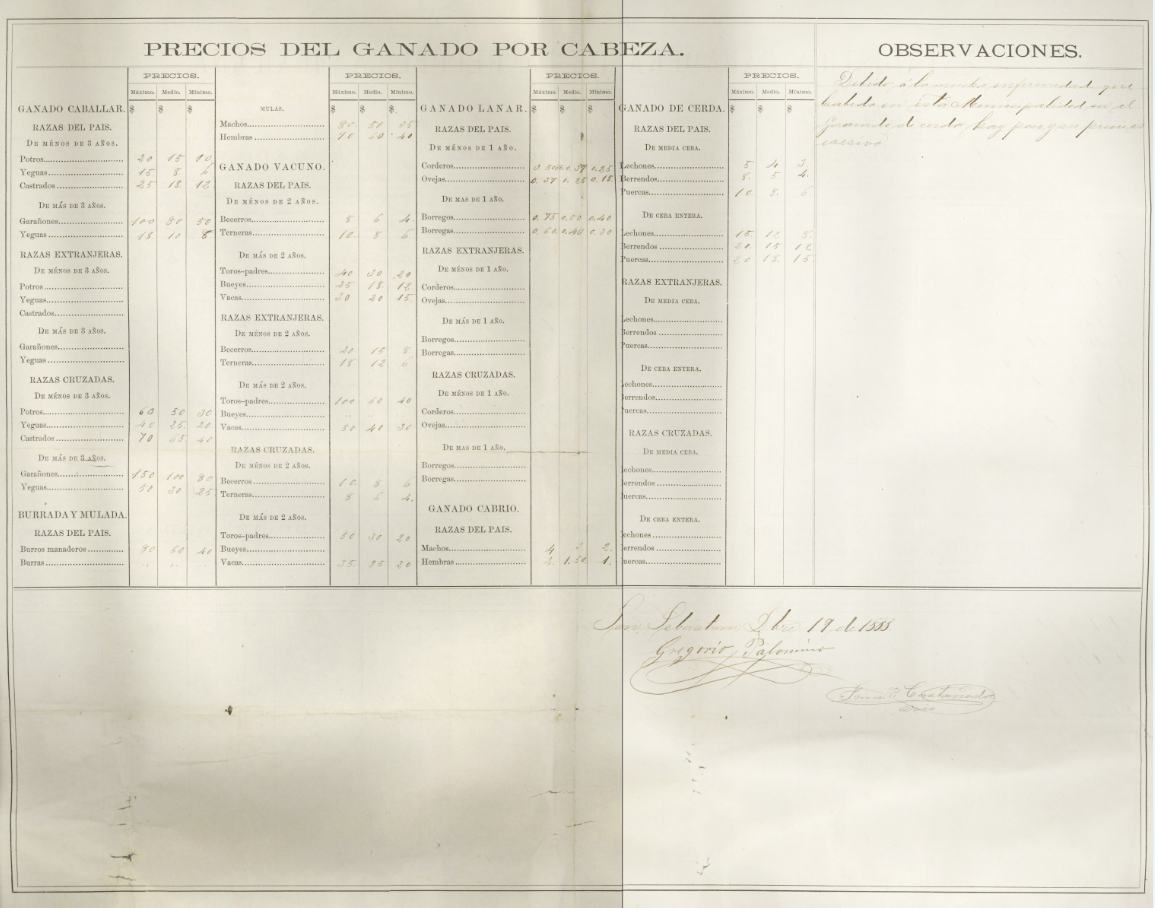 PRECIOS DEL GANADO POR CABEZA.
OBSERVACIONES.
PRECIOS.
Máximo. Medio. Mínimo.
GANADO CABALLAR. $ $ $
RAZAS DEL PAIS.
DE MÉNOS DE 3 AÑOS.
Potros 20 15 10
Yeguas 15 8
Castrados 25 18 12
DE MÁS DE 3 AÑOS.
Garañones 100 80 50
Yeguas 18 10 8
RAZAS EXTRANJERAS.
DE MÉNOS DE 3 AÑOS.
Potros
Yeguas
Castrados
DE MÁS DE 3 AÑOS.
Garañones
Yeguas
RAZAS CRUZADAS.
DE MÉNOS DE 3 AÑOS.
Potros 60 50 30
Yeguas 40 25 20
Castrados 70 40
DE MÁS DE 3 AÑOS.
Garañones 150 100 80
Yeguas 50 30 25
BURRADA Y MULADA.
RAZAS DEL PAIS.
Burros manaderos 50 40
Burras
PRECIOS.
Máximo. Medio. Mínimo.
MULAS. $ $ $
Machos 50
Hembras 40
GANADO VACUNO.
RAZAS DEL PAIS.
DE MÉNOS DE 2 AÑOS.
Becerros 8 6 4
Terneras 10 8 6
DE MÁS DE 2 AÑOS.
Toros-padres 40 30 20
Bueyes 25 18 12
Vacas 30 20 15
RAZAS EXTRANJERAS.
DE MÉNOS DE 2 AÑOS.
Becerros 20 15 8
Terneras 18 12 6
DE MÁS DE 2 AÑOS.
Toros-padres 100 60 40
Bueyes
Vacas 50 40 30
RAZAS CRUZADAS.
DE MÉNOS DE 2 AÑOS.
Becerros 10 8 6
Terneras 8 6 4
DE MÁS DE 2 AÑOS.
Toros-padres 50 30 20
Bueyes
Vacas 35 25 20
PRECIOS.
Máximo. Medio. Mínimo.
GANADO LANAR. $ $ $
RAZAS DEL PAIS.
DE MÉNOS DE 1 AÑO.
Corderos 0.37 0.25
Ovejas 0.37 0.25 0.18
DE MAS DE 1 AÑO.
Borregos 0.75 0.50 0.40
Borregas 0.60 0.40 0.30
RAZAS EXTRANJERAS.
DE MÉNOS DE 1 AÑO.
Corderos
Ovejas
DE MÁS DE 1 AÑO.
Borregos
Borregas
RAZAS CRUZADAS.
DE MÉNOS DE 1 AÑO.
Corderos
Ovejas
DE MAS DE 1 AÑO.
Borregos
Borregas
GANADO CABRIO.
RAZAS DEL PAIS.
Machos 4 3 2
Hembras 2 1.50 1
PRECIOS.
Máximo. Medio. Mínimo.
GANADO DE CERDA. $ $ $
RAZAS DEL PAIS.
DE MEDIA CEBA.
Lechones 5 4 3
Berrendos 8 5 4
Puercas 10 8 6
DE CEBA ENTERA.
Lechones 15 12 8
Berrendos 20 15 12
Puercas 20 18 15
RAZAS EXTRANJERAS.
DE MEDIA CEBA.
Lechones
Berrendos
Puercas
DE CEBA ENTERA.
Lechones
Berrendos
Puercas
RAZAS CRUZADAS.
DE MEDIA CEBA.
Lechones
Berrendos
Puercas
DE CEBA ENTERA.
Lechones
Berrendos
Puercas
Debido á la mucha enfermedad que
habido en esta Municipalidad en el
Ganado de cerda, hay
San Sebastian 19 de 1888
Gregorio Palomino